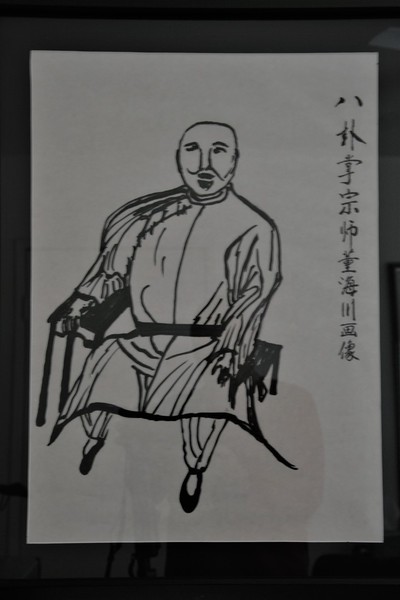 八卦掌宗师董海川画像